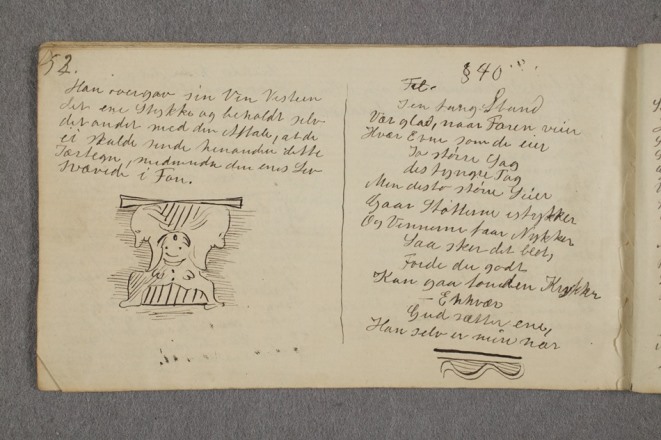 52.
Han overgav sin Ven Vestein
det ene Stykke og beholdt selv
det andet med den Aftale, at de
ei skulde sende hinanden dette
Tærtegn, medmindre den enes Liv
svævede i Fare.
§40
Til
I en tung Stund
Vær glad, naar Faren veier
Hver Evne som du eier
Jo større Sag
des tyngre Tag
Men desto større Seier
Gaar Støtterne istykker
Og Vennerne faar Nykker
Saa sker det blot,
Fordi du godt
Kan gaa foruden Krykker
– Enhver
Gud sætter ene,
Han selv er mere nær